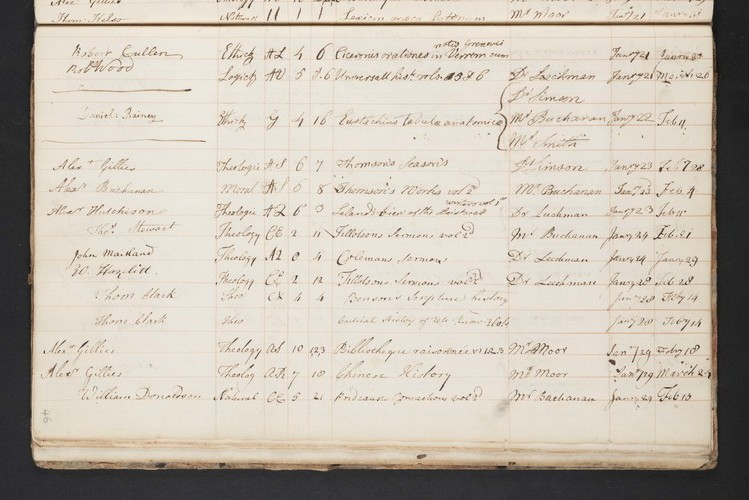 Alexr Gillies
Thom: Kelso Naturall 11 1 1 Lexicon Mr Moor Janry 21
Robert Cullen Ethick AL 4 6 Ciceronis orationes in Verrem cum notis Grenovii Janry 21 Janry 23
Robt Wood Logick AU 5 5.6 Universall hist. vols. 5 & 6 Dr Loechman Janry 21 March 20
Daniel: Rainey Ethick Y 4 16 Eustachius tabulæ anatomicæ Dr Simson Mr Buchanan Mr Smith Janry 22 Feb 11
Alexr Gillies Theologie AS 6 7 Thomson's Seasons Dr Simson Janry 23 Feb 28
Alexr Buchanan Moral AS 6 8 Thomson's Works vol 2d Mr Buchanan Janry 23 Feb 4
Alexr Hutcheson Theologie AL 6 3 Leland's View of the Deistical writers vol 1st Dr Luchman Janry 23 Feb 11
Thos. Stewart Theology CE 2 11 Tillotsons Sermons vol 2d Mr Buchanan Janry 24 Feb. 21
John Maitland Theology 8 4 Colemans Sermons Dr Lechman Janry 24 Janry 29
W. Hazlitt. Theology CE 2 12 Tillotsons Sermons vol 2d Dr Luchman Janry 28 Feb. 28
Thom Clark Theo CX 4 4 Benson's Scripture history Janry 28 Febry 14
Thom Clark Theo Critical History of Janry 28 Febry 14
Alexr Gillies Theology AS 10 1,2,3 Bibliotheque raisonnée v: 1.2.3 Mr Moor Janry 29 Febry 18
Alexr Gillies Theolog AR 7 18 Chinese History Mr Moor Janry 29 March 24
William Donaldson Natural CE 5 21 Prideaux Connections vol 2d Mr Buchanan Janry 29 Feb 10
46